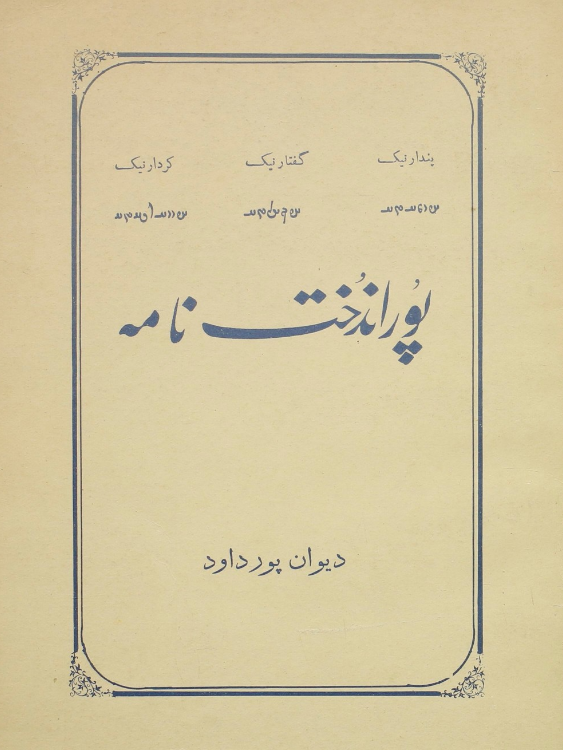 پندار نیک گفتار نیک کردار نیک
پُوراندُخت نامه
دیوان پورداود